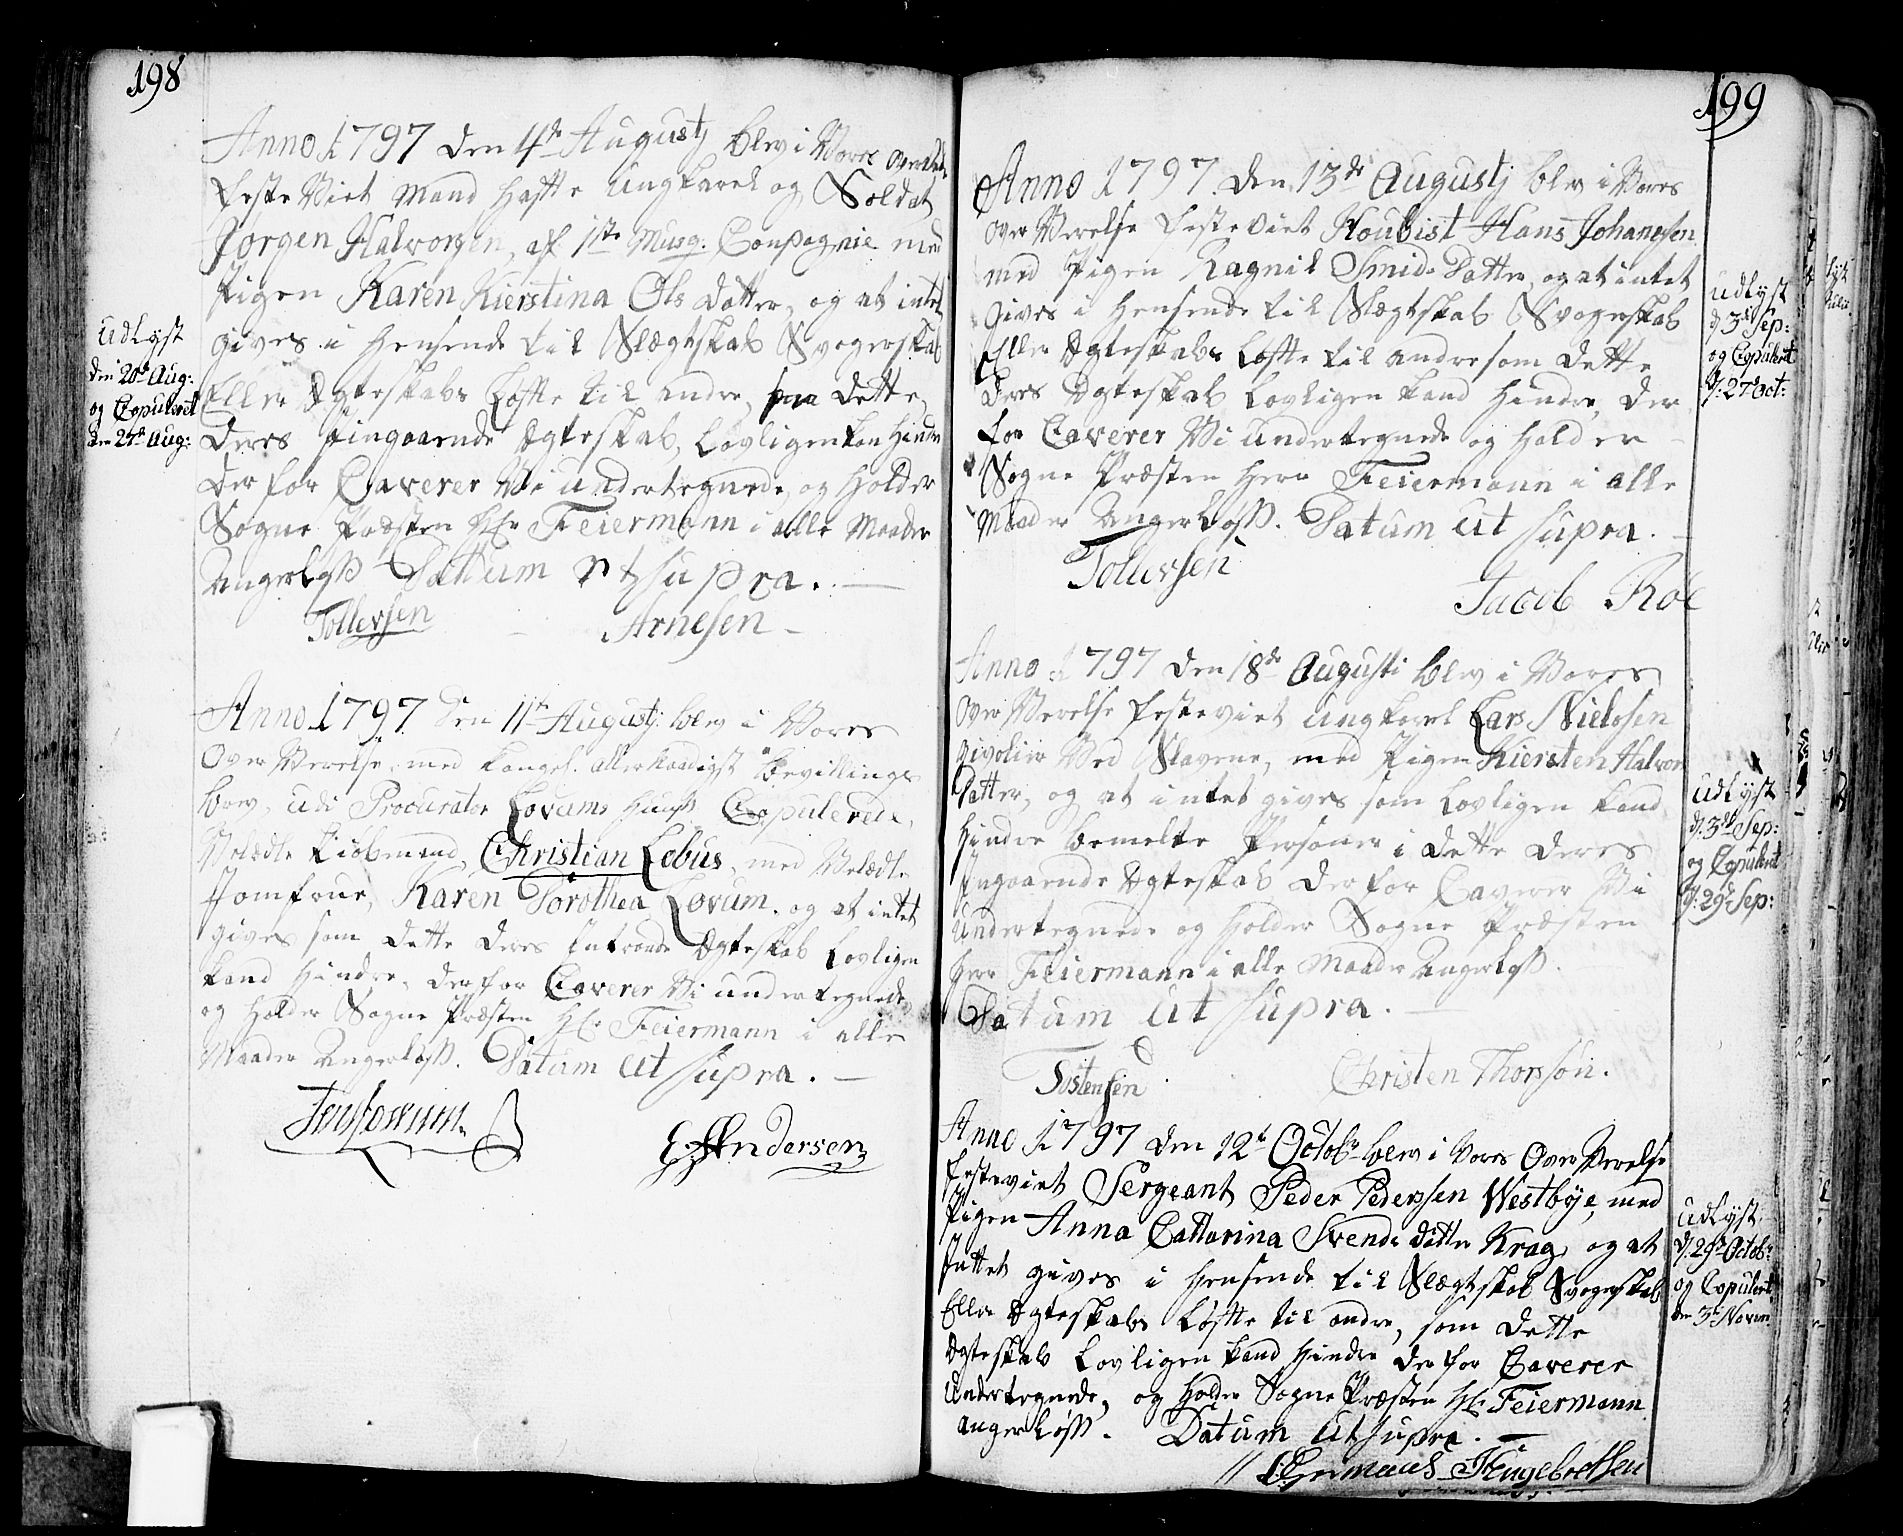 198
Anno 1797 den 4de Augustj blev i Vores overVærelse
festeViet Mand hafte Ungkarel og Soldat
Jørgen Halvorsen, af 1ste Musq. Conpagnie med
Pigen Karen Kierstina Ols datter, og at intet
gives i hensende til Slægtskab Svogerskab
Eller Ægteskabs Løfte til andre, paa dette,
Deres Jingaaende Ægteskab, Lovligen kan hindre
Derfor Caverer Vi undertegnede, og holder
Sogne Præsten Hr: Feiermann i alle Maader
Angerløss Dattum Ut supra.
Tollevsen Arnesen
Udlyst
den 20de Aug:
og Copuleret
den 25de Aug:
Anno 1797 Den 11te Augustj blev i Vores
OverVærelse, med kongel. allernaadigst bevillings
brev, udi Procurator Lovums Huus Copulerede,
Velædle Kiøbmand, Christian Lebus, med Velædle
Jomfrue, Karen Dorothea Lovum, og at intet
gives som dette deres Intrænde Ægteskab Lovligen
kand hindre, derfor Caverer Vi undertegnede
og holder Sogne Præsten Hr: Feiermann i alle
Maader Angerløss. Datum Ut supra.
Jens Lovum Andersen
199
Anno 1797. den 13de Augustj blev i Vores
overVærelse festeviet Houbist Hans Johanesen
med Pigen Ragnil Smids Datter, og at intet
gives i hensende til Slægtskab Svogerskab
Eller Ægteskabs Løfte til andre som dette
deres Ægteskab Lovligen kand hindre, Der
for Caverer Vi undertegnede og holder
Sogne Præsten Herr Feiermann i alle
Maader Angerløss. Datum Ut supra.
Tollevsen
Jacob Roe
Udlyst
d. 3de Sep:
og Copuleret
d: 27de Oct:
Anno 1797 den 18de Augusti blev i Vores
OverVærelse festeviet Ungkarel Lars Nielssen
Givolier Ved Slavene, med Pigen Kiersten Halvor
Datter, og at intet gives som Lovligen kand
hindre bemelte Personer i dette deres
Ingaaende Ægteskab derfor Caverer Vi
Undertegnede og holder Sogne Præsten
Herr Feiermann i alle Maader Angerløss.
Datum Ut supra.
Tostensen Christen Thorssøn.
Udlyst
d. 3de Sep:
og Copuleret
d: 29de Sep:
Anno 1797 den 12te Octobr blev i Vores OverVærelse
festeviet Sergeant Peder Pedersen Westbøje, med
Pigen Anna Cattarina Svends datter Krag, og at
Inttet gives i hensende til Slægtskab Svogerskab
Eller Ægteskabs Løfte til andre, som dette
Ægteskab Lovligen kand hindre derfor Caverer
Undertegnede, og holder Sogne Præsten Hr: Feiermann
angerløss. Datum Ut supra.
Engebretsen
Udlyst
d. 29de Octobr
og Copuleret
den 3de Novem